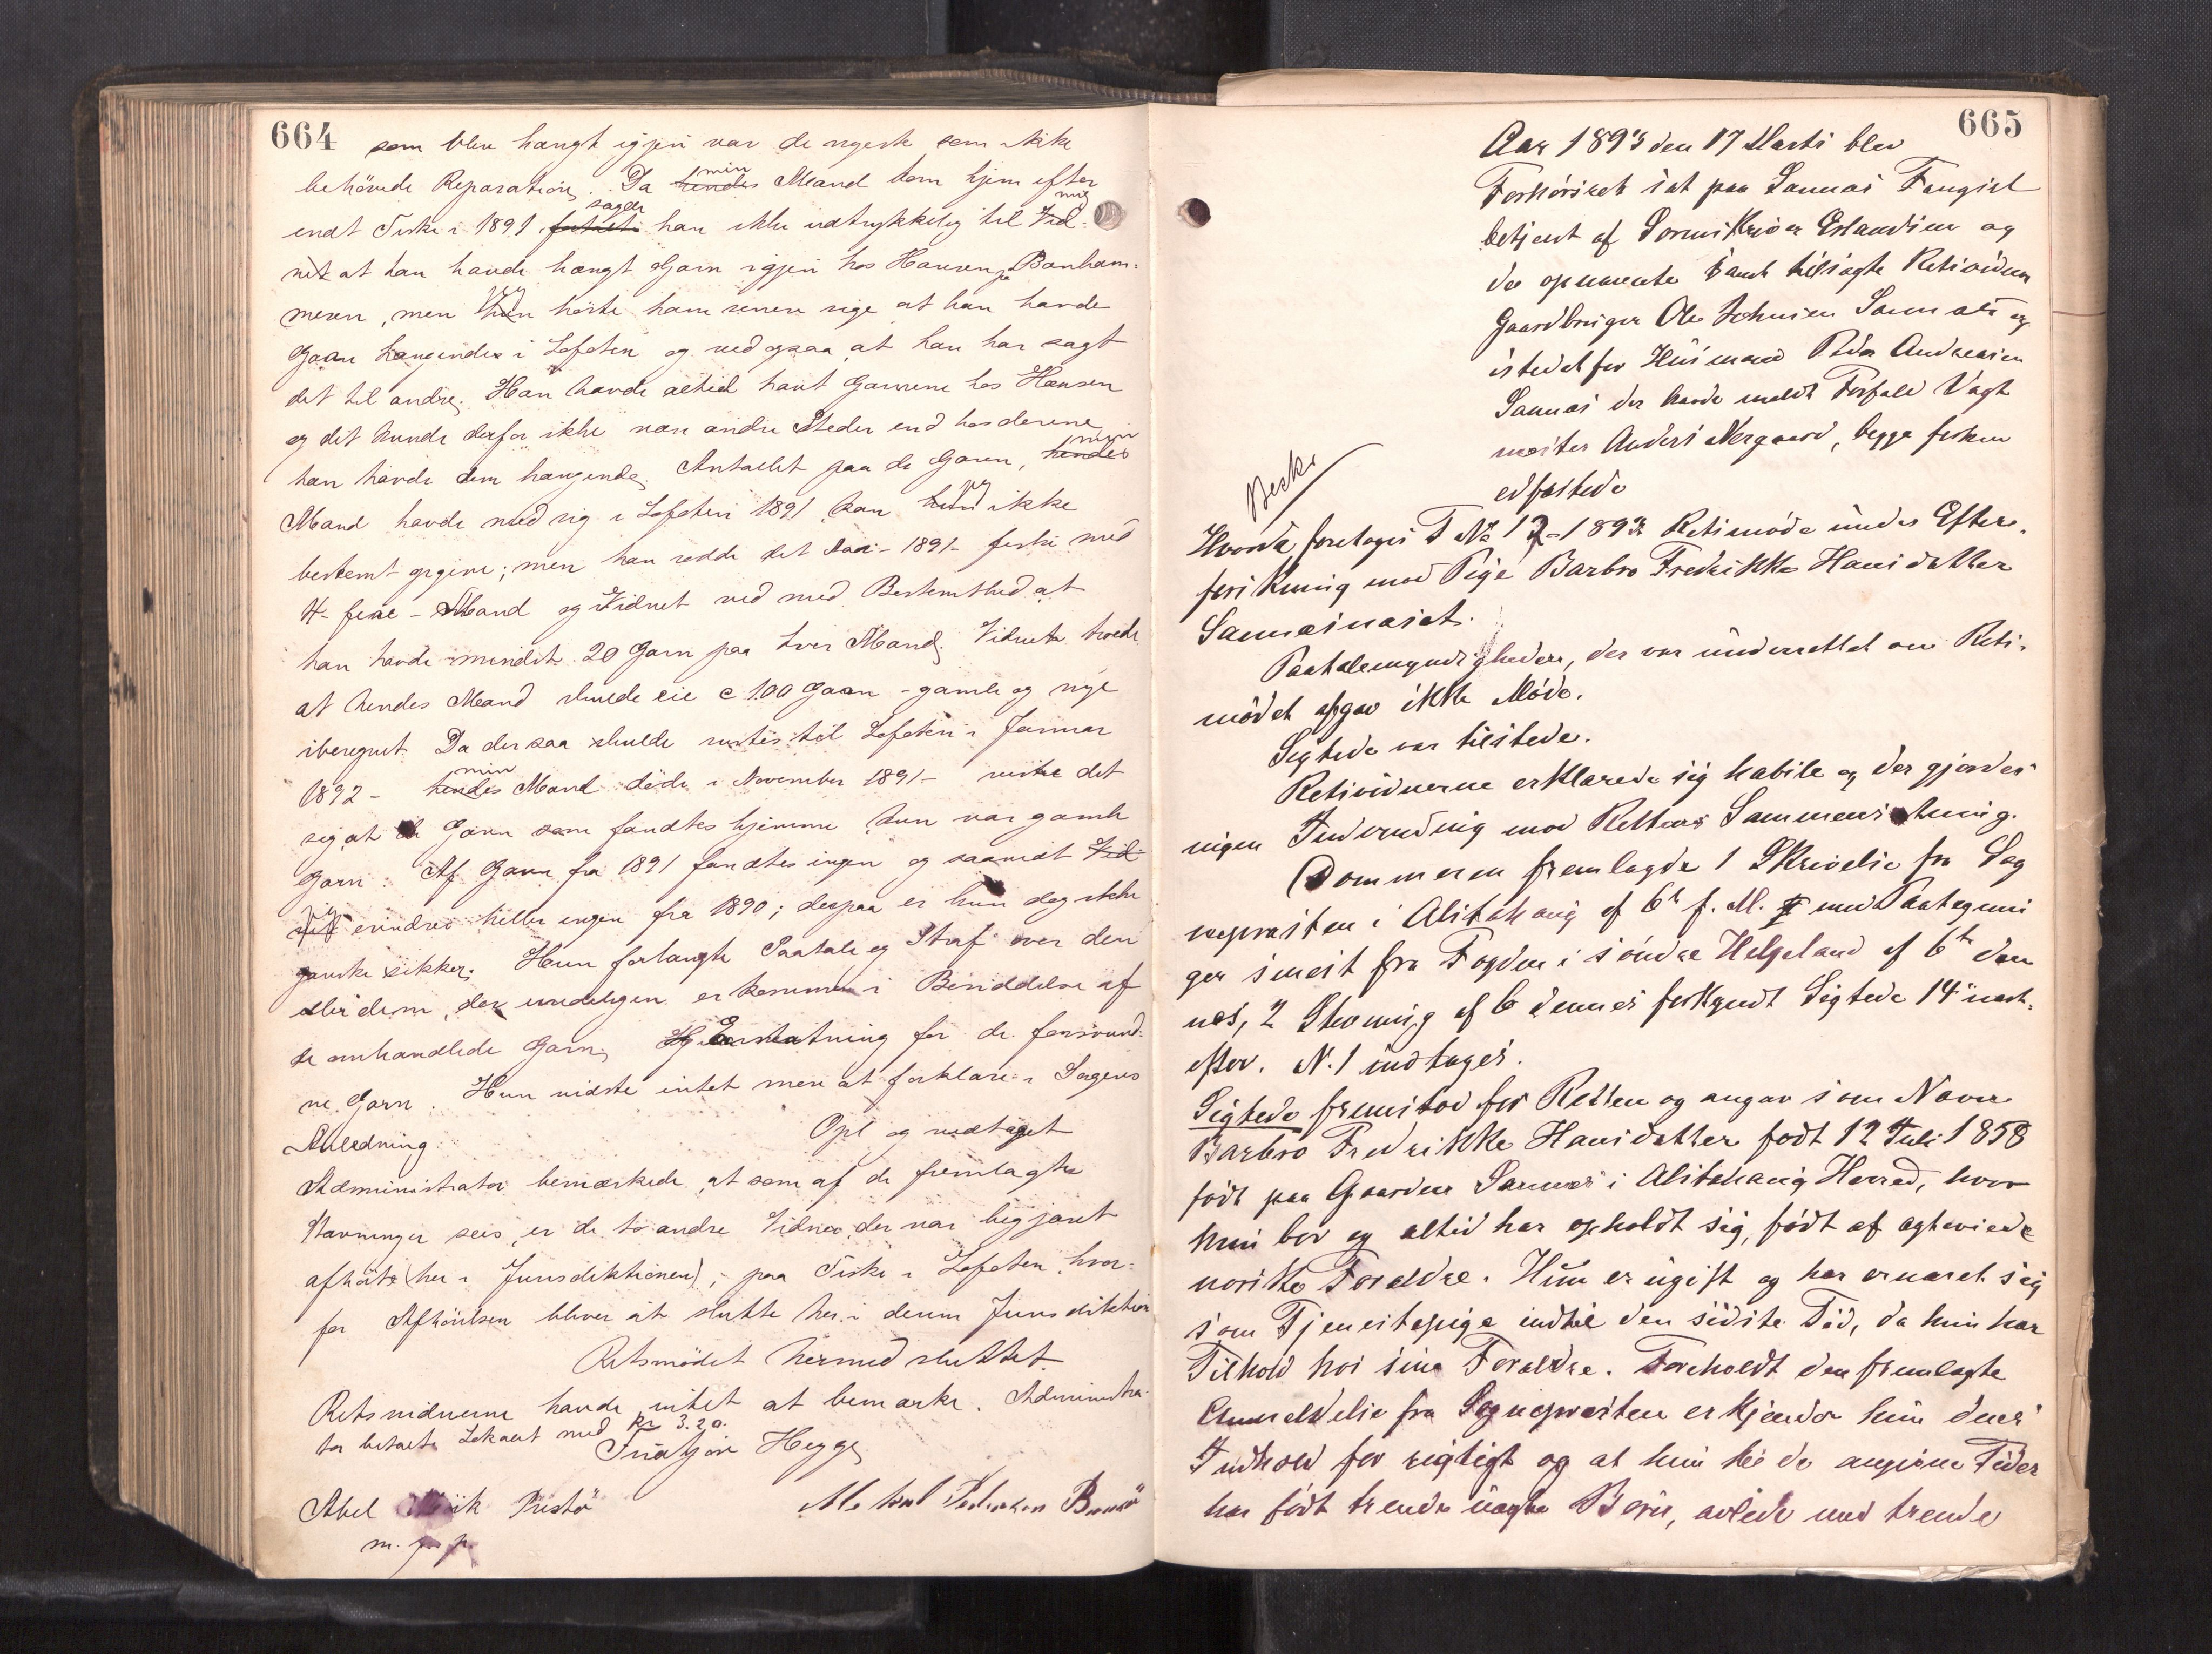 664
som blev hængt igjen var de nyeste som ikke
behövede Reparation. Da hendes min Mand kom hjem efter
endt Fiske i 1891 fortalte sagde han ikke udtrykkelig til Vid- mig
net at han havde hængt Garn igjen hos Hansen paa Bonham-
meren, men hun jeg hörte ham senere sige at han havde
Garn hængende i Lofoten og ved ogsaa at han har sagt
det til andre. Han havde altid havt Garnene hos Hansen
og det kunde derfor ikke være andre Steder end hos denne
han havde dem hængende. Antallet paa de Garn, hendes min
Mand havde med sig i Lofoten 1891 kan hun jeg ikke
bestemt opgive; men han rodde det Aar - 1891 - fiske med
4 - fire - Mand og Vidnet ved med Bestemthed at
han havde mindst 20 Garn paa hver Mand. Vidnet troede
at hendes Mand skulde eie c 100 Garn - gamle og nye
iberegnet. Da der saa skulde rustes til Lofoten i Januar
1892 - hendes min Mand döde i November 1891 - viste det
sig at de Garn som fandtes hjemme kun var gamle
Garn. Af Garn fra 1891 fandtes ingen og saavidt Vid-
net jeg erindrer heller ingen fra 1890; derpaa er hun dog ikke
ganske sikker. Hun forlangte Paatale og Straf over den
eller dem, der uredeligen er kommen i Besiddelse af
de omhandlede Garn, og Erstatning for de forsvund-
ne Garn. Hun vidste intet mere at forklare i Sagens
Anledning. Opl og vedtaget
Administrator bemærkede, at som af de fremlagte
Stævninger sees, er de to andre Vidner, der var begjæret
afhörte (her i Jurisdiktionen), paa Fiske i Lofoten, hvor-
for Afhörelsen bliver at slutte her i denne Jurisdiktion
Retsmödet hermed sluttet.
Retsvidnerne havde intet at bemærke. Administra-
tor betalte Lokalet med Kr 3.20.
Hegge
Abel
m. p. p.
665
Aar 1893 den 17 Marts blev
Forhörsret sat paa Sannæs Fængsel
betjent af Sorenskriver Erlandsen og
de opnævnte samt tilsagte Retsvidner
Gaardbruger Ole Johnsen Sannæs og
istedetfor Husmand Peder Andreasen
Sannæs der havde meldt Forfald Vagt
mester Anders Nergaard, begge forhen
edfæstede
Besk.
Hvorda foretoges T No 12 - 1893 Retsmöde under Efter-
forskning mod Pige Barbro Fredrikke Hansdatter
Sannæsnæset.
Paatalemyndigheden, der var underrettet om Rets-
mödet afgav ikke Möde.
Sigtede var tilstede.
Retsvidnerne erklærede sig habile og der gjordes
ingen Indvending mod Rettens Sammensætning.
Dommeren fremlagde 1 Skrivelse fra Sog
nepresten i Alstahaug af 6te f. M. med Paategnin
ger senest fra Fogden i söndre Helgeland af 6te den
nes, 2 Stevning af 6 dennes forkyndt Sigtede 14 næst-
efter. N. 1 indtages.
Sigtede fremstod for Retten og angav som Navn
Barbro Fredrikke Hansdatter födt 12 Juli 1858
födt paa Gaarden Sannæs i Alstahaug Herred, hvor
hun bor og altid har opholdt sig, födt af egteviede
norske Forældre. Hun er ugift og har ernæret sig
som Tjenestepige indtil den sidste Tid, da hun har
Tilhold hos sine Forældre. Foreholdt den fremlagte
Anmeldelse fra Sognepresten erkjender hun dens
Indhold for rigtigt og at hun til de angivne Tider
har födt trende uægte Börn, avlede med trende